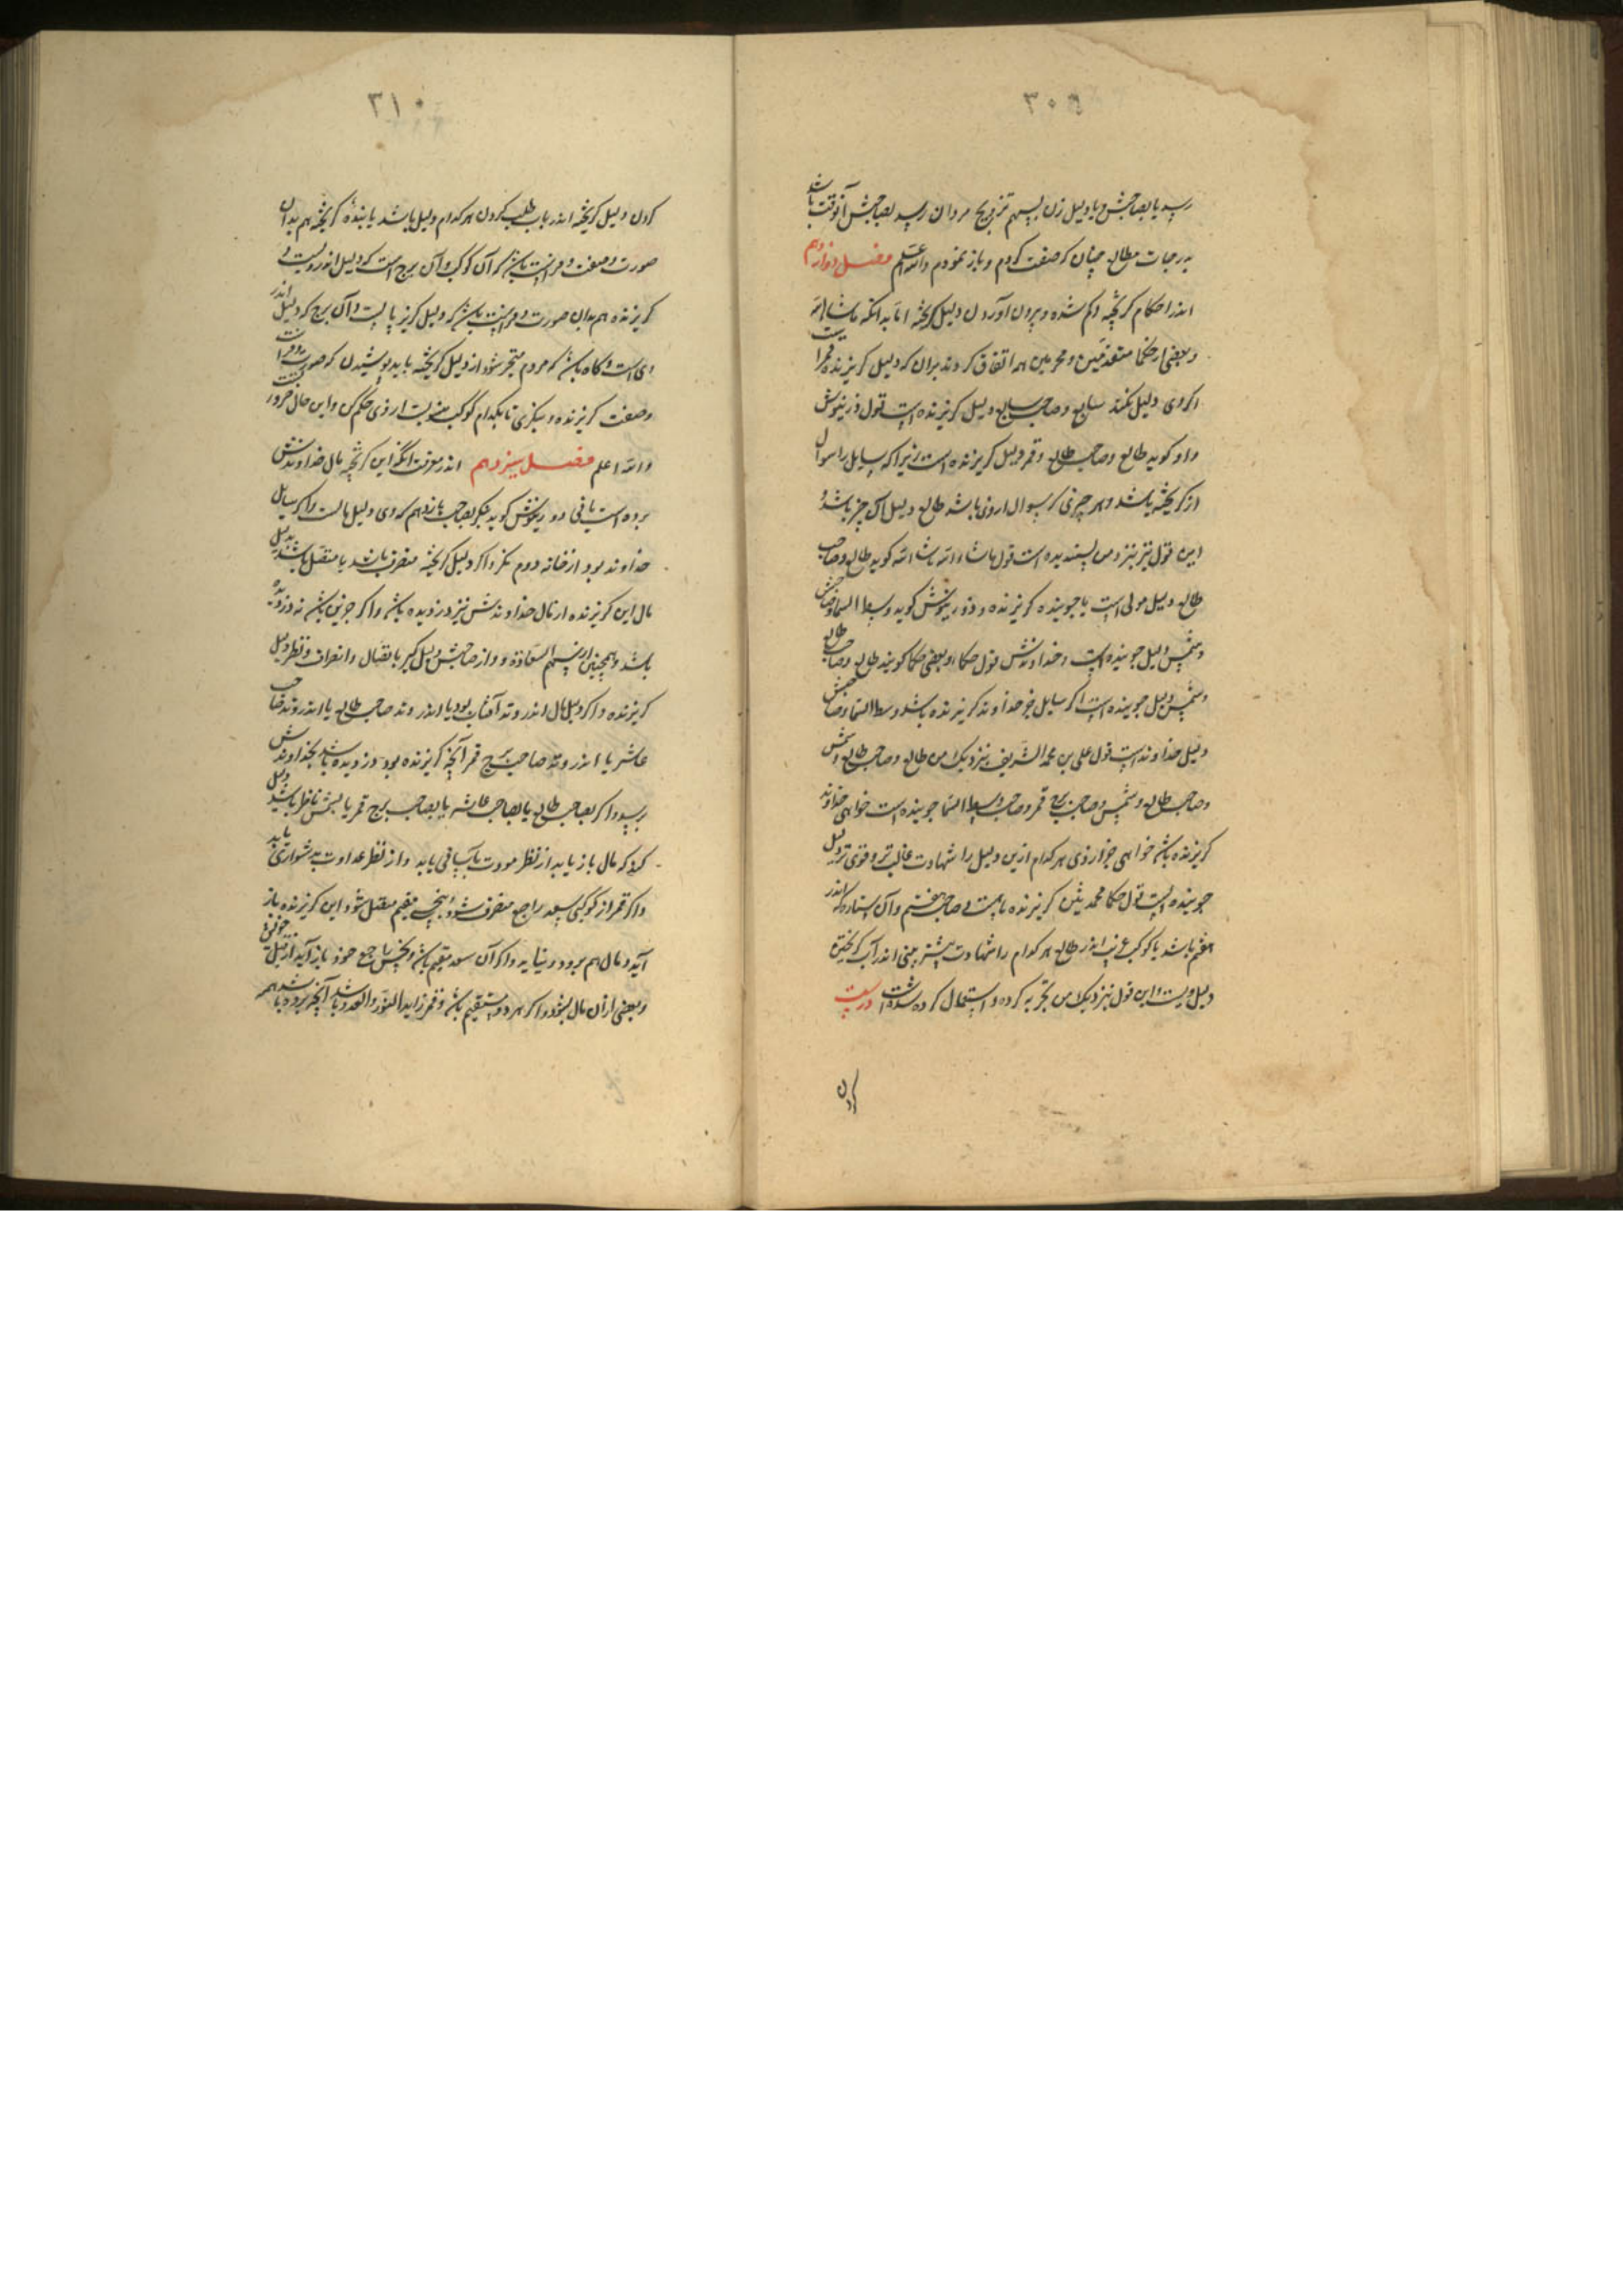 ۳۰۹
رسد یا بصاحبش و یا دلیل زن بسهم تزویج مردان رسد بصاحبش آنوقت باشد
بدرجات مطالع چنان که صفت کردم و باز نمودم والله اعلم فصل دوازدهم
اندر احکام گریخته و گم شده و بیرون آوردن دلیل گریخته اما بدانکه ماشاالله
و بعضی از حکما متقدمین و محدثین همه اتفاق کردند بران که دلیل گریزنده قمر است
اگر وی دلیل نکند سابع و صاحب سابع دلیل گریزنده است قول ذرینوش
و او گوید طالع و صاحب طالع و قمر دلیل گریزنده است زیرا که سایل را سوال
از گریخته باشد و هر چیزی که سوال از وی باشد طالع دلیل آن چیز باشد و
این قول نیز نزد من پسندیده است قول ماشاءالله ماشاءالله گوید طالع و صاحب
طالع دلیل مولی است یا جوینده گریزنده و ذورینوش گوید وسط السما و صاحبش
و شمس دلیل جوینده است و خداوندش قول حکما و بعضی حکما گویند طالع و صاحب طالع
و شمس دلیل جوینده است اگر سایل جز خداوند گریزنده باشد وسط السما و صاحبش
دلیل خداوند است قول علی بن محمد الشریف نزدیک من طالع و صاحب طالع و شمس
و صاحب طالع و شمس و صاحب برج قمر و صاحب وسط السما جوینده است خواهی خداوند
گریزنده باش خواهی جز از وی هر کدام ازین دلیل را شهادت غالب تر و قوی تر دلیل
جوینده است قول حکما محمد گریزنده صاحب هفتم و آن ستاره که اندر
هفتم باشد یا کوکب غریب اندر طالع هر کدام را شهادت بیشتر بینی اندر آب گریختن
دلیل ویست و این قول نزدیک من تجربه کرده و استعمال کرده شده است درست
کردن
۳۱۰
کردن دلیل گریخته اندر باب طلب کردن هر کدام دلیل باشد یا بنده گریخته هم بدان
صورت و صفت و فراست باش که آن کوکب و آن برج است که دلیل اندرویست و
گریزنده هم بدان صورت و فراست باش که دلیل گریز پا است و آن برج که دلیل اندر
وی است و گاه باش که مردم متحیر شود از دلیل گریخته باید پوشیدن که صورت و فراست
و صفت گریزنده و بنگری تا بکدام کوکب منسوبست از وی حکم کن و این حال
والله اعلم فصل سیزدهم اندر معرفت آنکه این گریخته مال خداوندش
برده است یا نی ذورینوش گوید بنگر بصاحب یازدهم که وی دلیل مالست و اگر سایل
خداوند بود از خانه دوم نگر و اگر دلیل گریخته منصرف باشد یا متصل باشد بدلیل
مال این گریزنده از مال خداوندش نیز دزدیده باش و اگر جز این باش نه دزدیده
باشد و همچنین از سهم السعاده و از صاحبش دلیل گیر باتصال و انصراف و نظر دلیل
گریزنده و اگر دلیل مال اندر وتد آفتاب بود یا اندر وتد صاحب طالع یا اندر وتد صاحب
عاشر یا اندر وتد صاحب برج قمر آنچه گریزنده بود دزدیده باشد بخداوندش
برسد و اگر بصاحب طالع یا بصاحب عاشر یا بصاحب برج قمر یا بشمس ناظر باشد دلیل
کند که مال باز یابد از نظر مودت بآسانی یابد و از نظر عداوت بدشواری یابد
و اگر قمر از کوکبی سعد راجع منصرف شود و بنحسی مقیم متصل شود این گریزنده باز
آید و مال هم برود و نیابد و اگر آن سعد مقیم باش و نحس راجع خود باز آید از قبل خوفی
و بعضی از آن مال بشود و اگر هر دو مستقیم باش و قمر زایدالنور والعدد باشد آنچه برده باشد همه